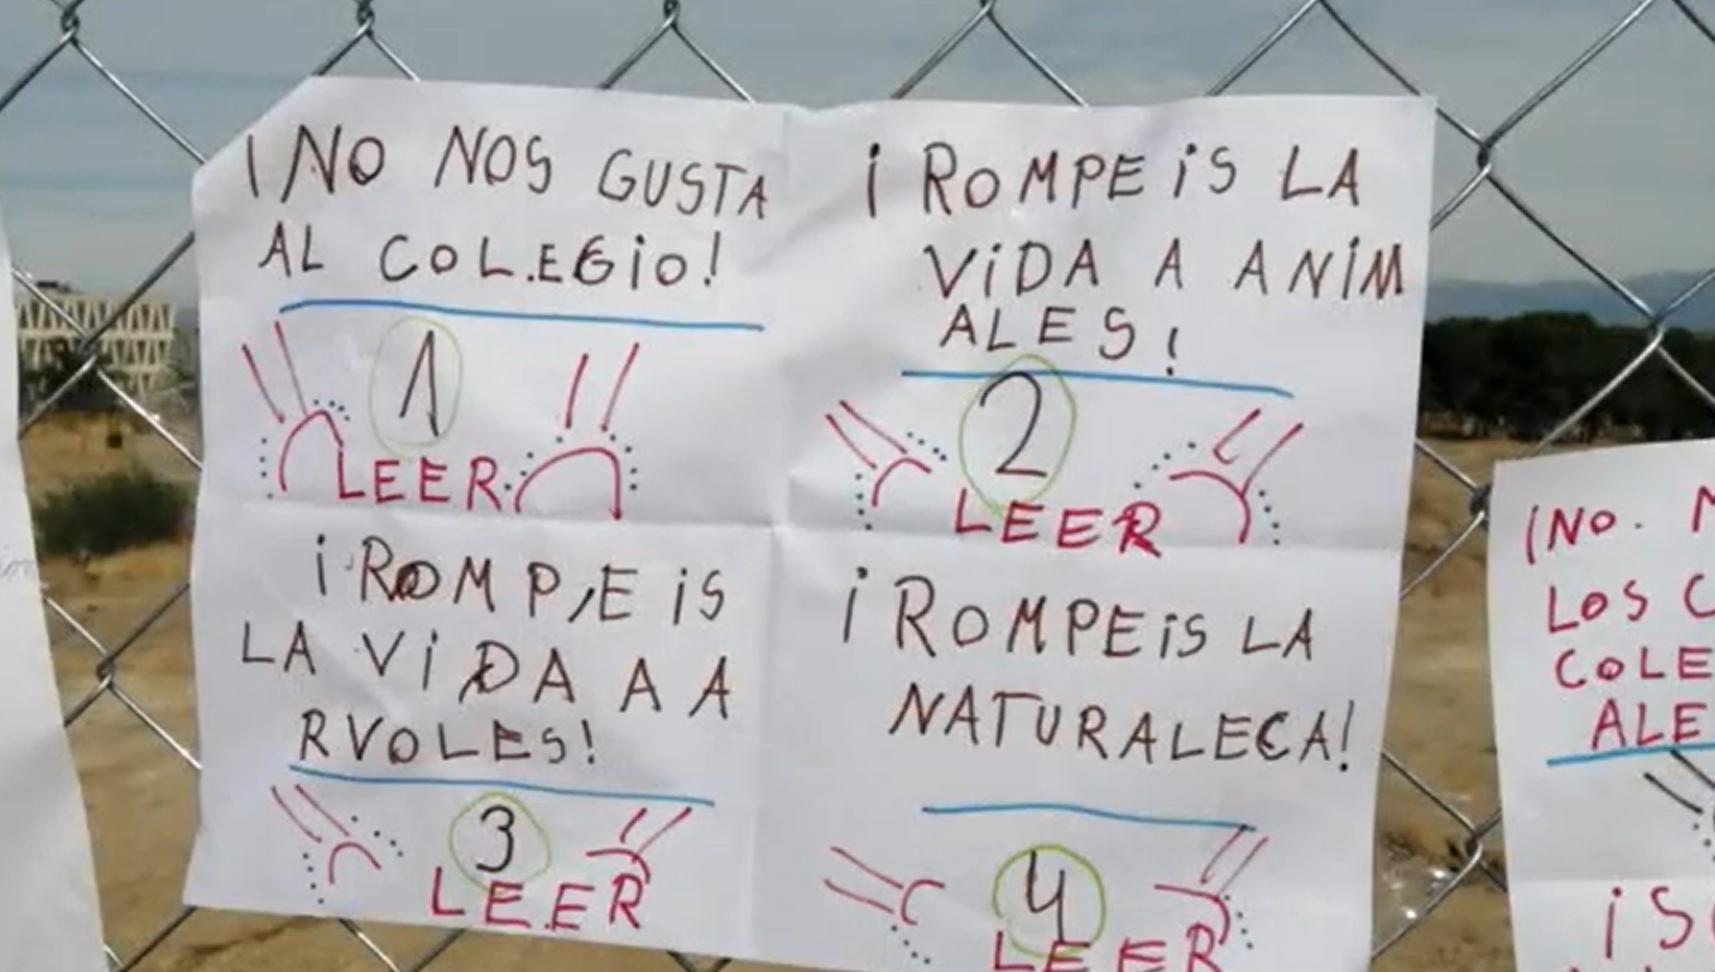 ¡NO NOS GUSTA
AL COLEGIO!
1
LEER
¡ROMPEiS LA
ViDA A ANiM
ALES!
2
LEER
¡ROMPEiS
LA ViDA A A
RVOLES!
3
LEER
¡ROMPEiS LA
NATURALECA!
4
LEER
¡NO.
LOS
COLE
ALE
¡S